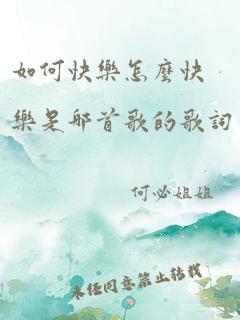 如何快樂怎麼快
樂是那首歌的歌詞
何必姐姐
未經同意禁止轉載